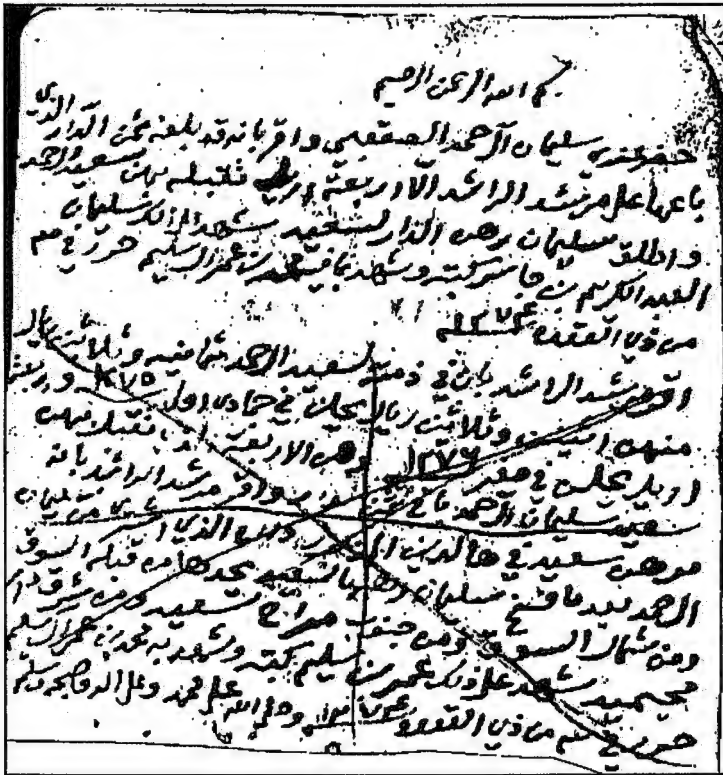 بسم الله الرحمن الرحيم
حضر عندي سليمان آل احمد الصقعبي واقر بانه قد بلغه ثمن الدار الذي
باعها على مرشد الراشد الا اربعة اريل نقبله بهن سعيد الحمد
واطلق سليمان رهن الدار لسعيد شهد على ذلك سليمان
العبد الكريم بن جاسر كتبه وشهد بما فيه محمد بن عمر السليم حرر في
من ذي القعدة
اقر مرشد الراشد بان في ذمته لسعيد الحمد ثمانية وثلاثين ريال
منهن اثنين وثلاثين ريال يحلن في جمادى اول ١٢٧٥ واربعة
اريل يحلن في صفر ١٢٧٦ وهن الاربعة نقبله بهن
سعيد سليمان الحمد باقي ثمن واقر مرشد الراشد بانه
مرهن سعيد في هالدين الذي من سليمان
الحمد بعد ما فسخ سليمان رهنها لسعيد يحدها من قبله السوق
ومن شمال السوق ومن جنوب سعيد ومن شرق
محيميد شهد على ذلك عمر بن سليم كتبه وشهد به محمد بن عمر السليم
حرر في من ذي القعدة وصلى الله على محمد وعلى اله وصحبه وسلم